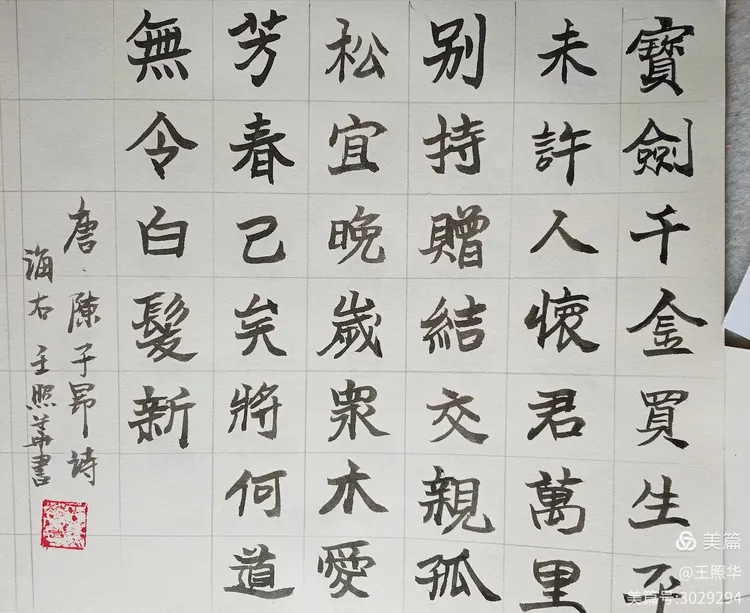 寶劍千金買生平
未許人懷君萬里
别持贈結交親孤
松宜晚歲衆木愛
芳春已矣將何道
無令白髮新
唐·陳子昂詩
海右王照華書
美篇
@王照华
美篇号:3029294